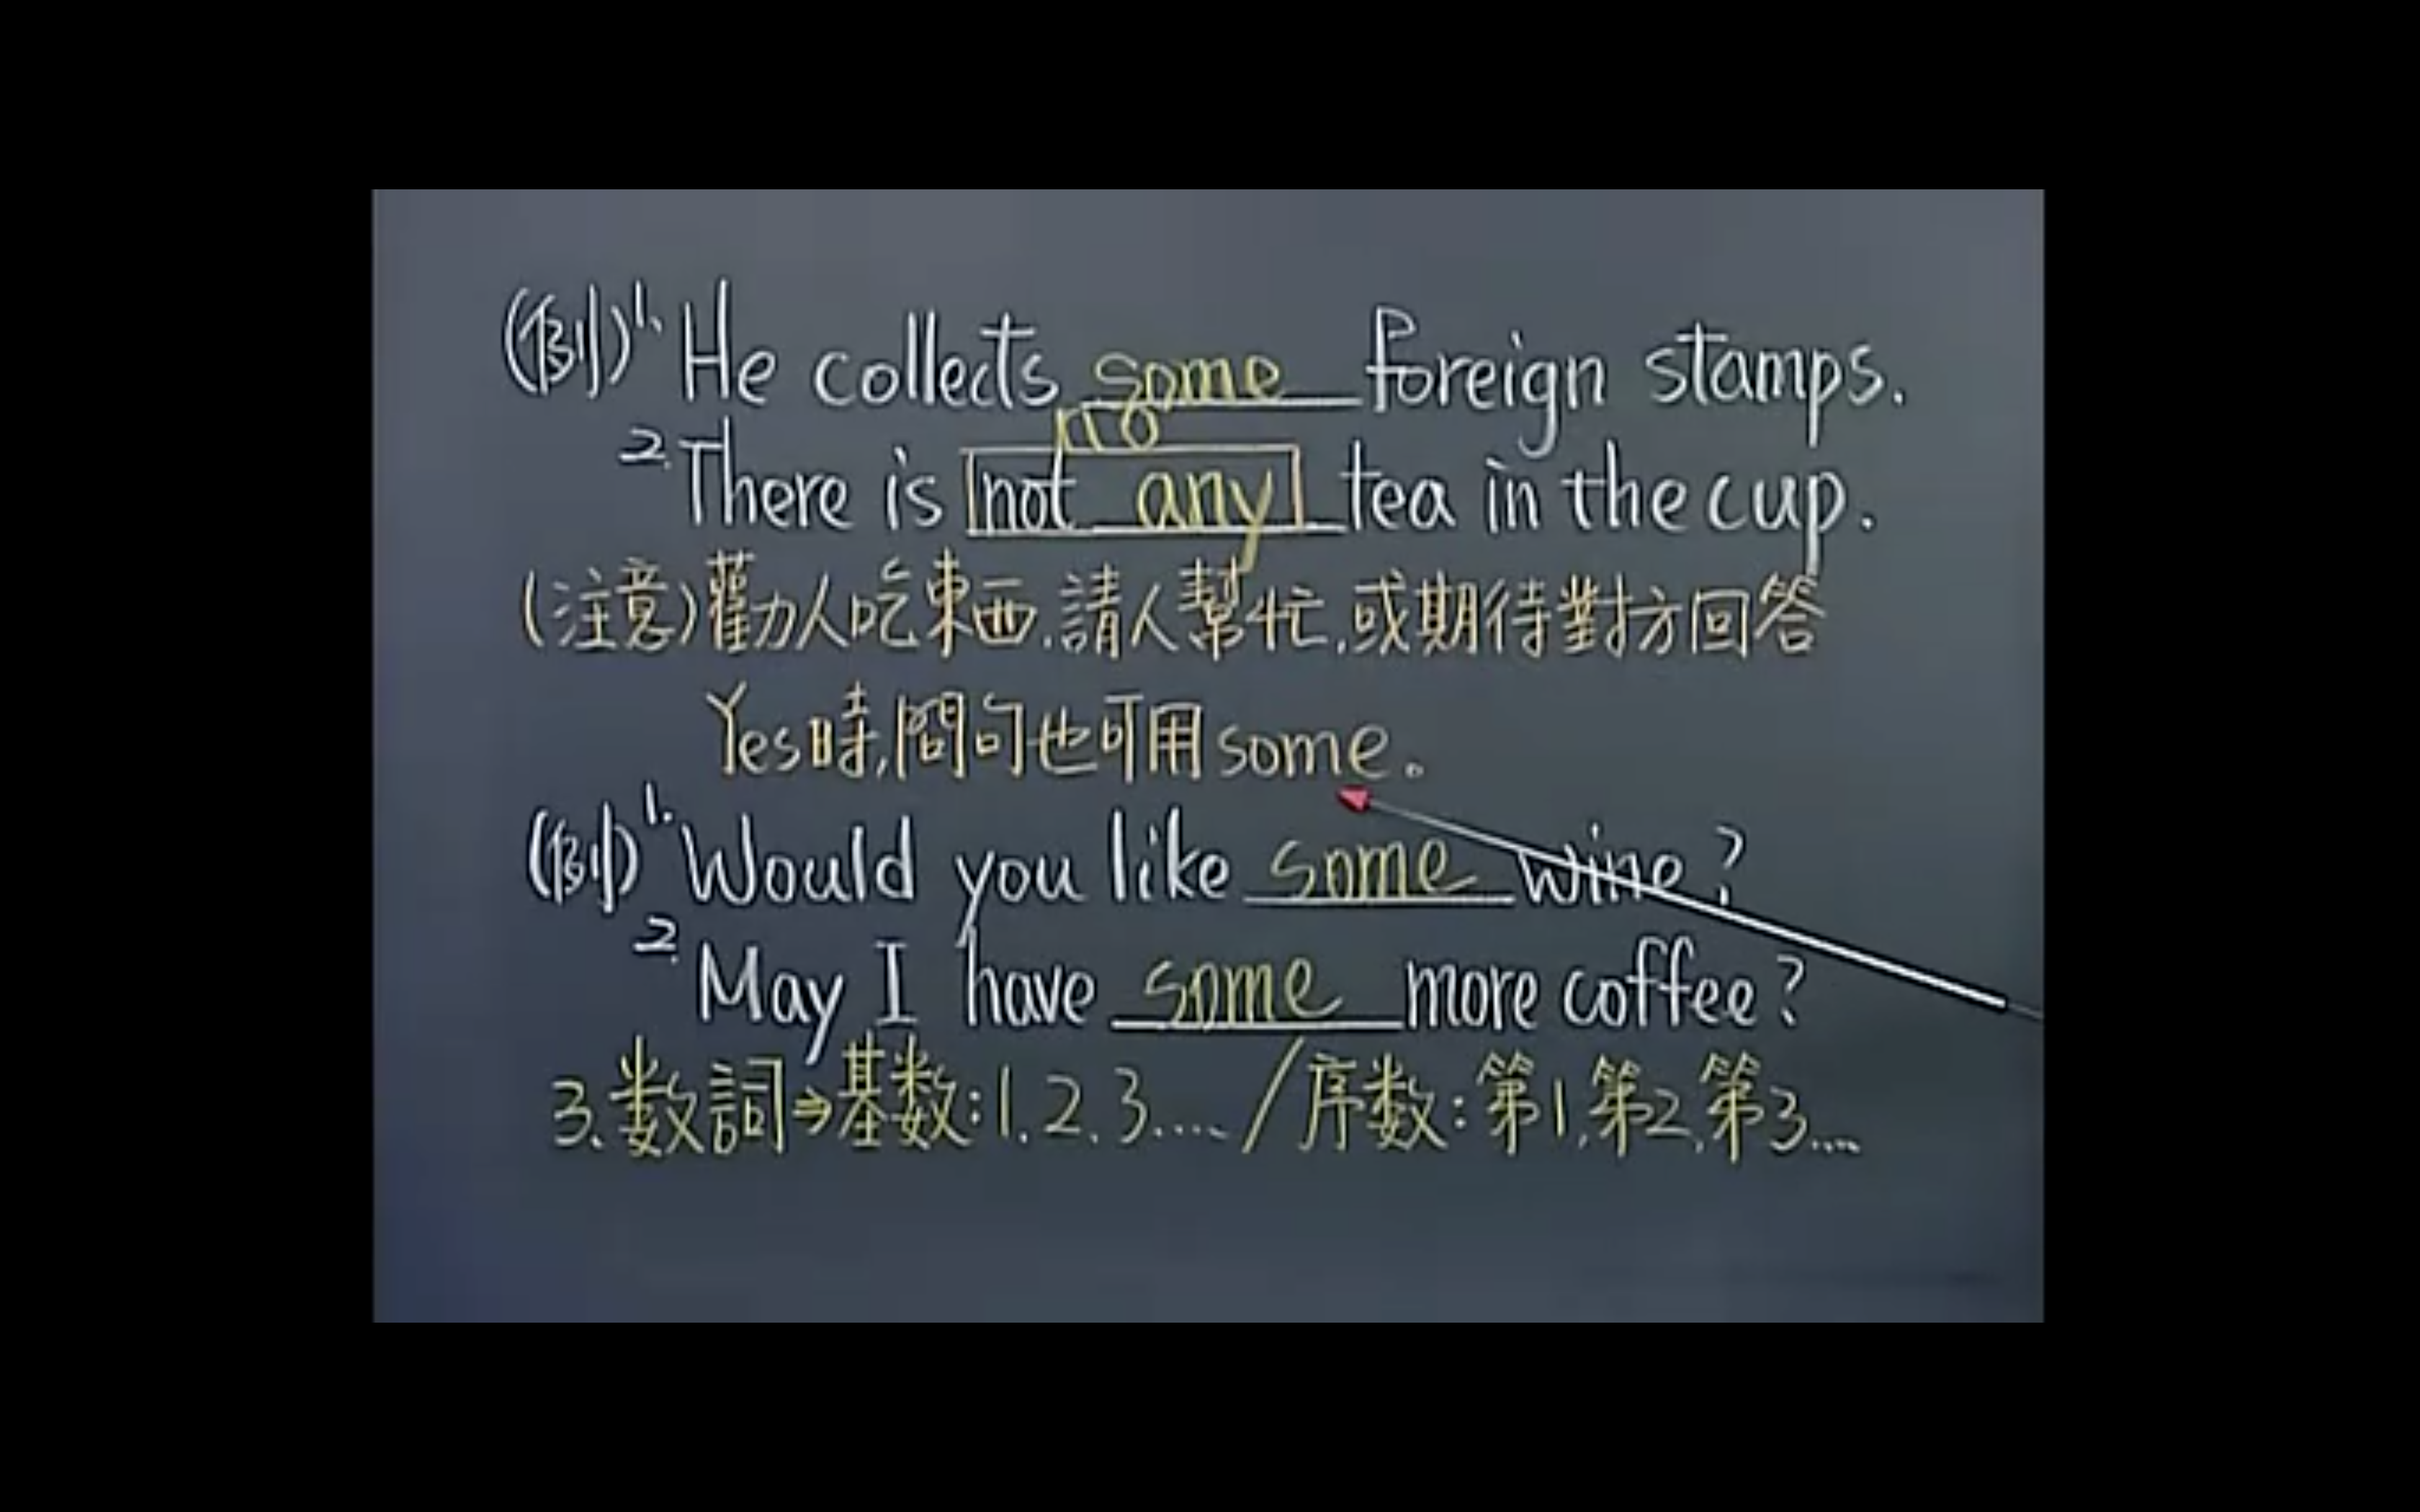 (例)1. He collects some foreign stamps.
no
2. There is not any tea in the cup.
(注意)勸人吃東西,請人幫忙,或期待對方回答
Yes時,問句也可用some。
(例)1. Would you like some wine?
2. May I have some more coffee?
3.数詞⇒基数:1.2.3..../序数:第1,第2,第3....